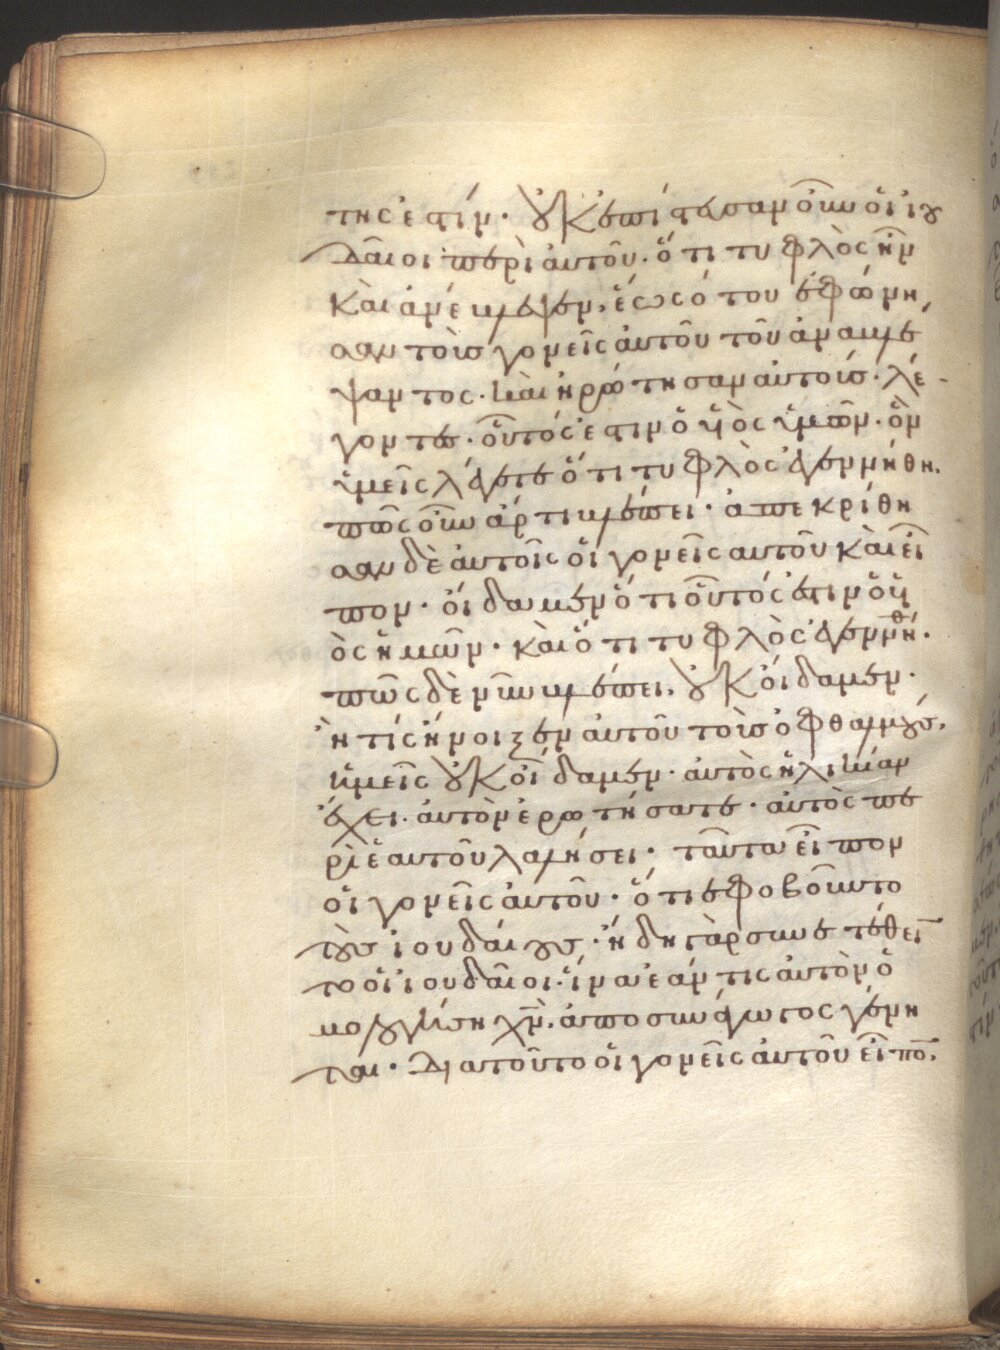 της ἐστίν· οὐκ ἐπίστευσαν οὖν οἱ ἰου
δαῖοι περὶ αὐτοῦ· ὅτι τυφλὸς ἦν
καὶ ἀνέβλεψεν, ἕως ὅτου ἐφώνη
σαν τοὺς γονεῖς αὐτοῦ τοῦ ἀναβλέ
ψαντος· καὶ ἠρώτησαν αὐτούς· λέ
γοντες· οὗτός ἐστιν ὁ υἱὸς ὑμῶν· ὃν
ὑμεῖς λέγετε ὅτι τυφλὸς ἐγεννήθη.
πῶς οὖν ἄρτι βλέπει· ἀπεκρίθη
σαν δὲ αὐτοῖς οἱ γονεῖς αὐτοῦ καὶ εἶ
πον· οἴδαμεν ὅτι οὗτός ἐστιν ὁ υἱ
ὸς ἡμῶν· καὶ ὅτι τυφλὸς ἐγεννήθη·
πῶς δὲ νῦν βλέπει, οὐκ οἴδαμεν·
ἢ τίς ἤνοιξεν αὐτοῦ τοὺς ὀφθαλμούς,
ἡμεῖς οὐκ οἴδαμεν· αὐτὸς ἡλικίαν
ἔχει· αὐτὸν ἐρωτήσατε· αὐτὸς πε
ρὶ ἑαυτοῦ λαλήσει· ταῦτα εἶπον
οἱ γονεῖς αὐτοῦ· ὅτι ἐφοβοῦντο
τοὺς ἰουδαίους· ἤδη γὰρ συνετέθειν
το οἱ ἰουδαῖοι· ἵνα ἐάν τις αὐτὸν ὁ
μολογήσῃ χν, ἀποσυνάγωγος γένη
ται· διατοῦτο οἱ γονεῖς αὐτοῦ εἶπον,